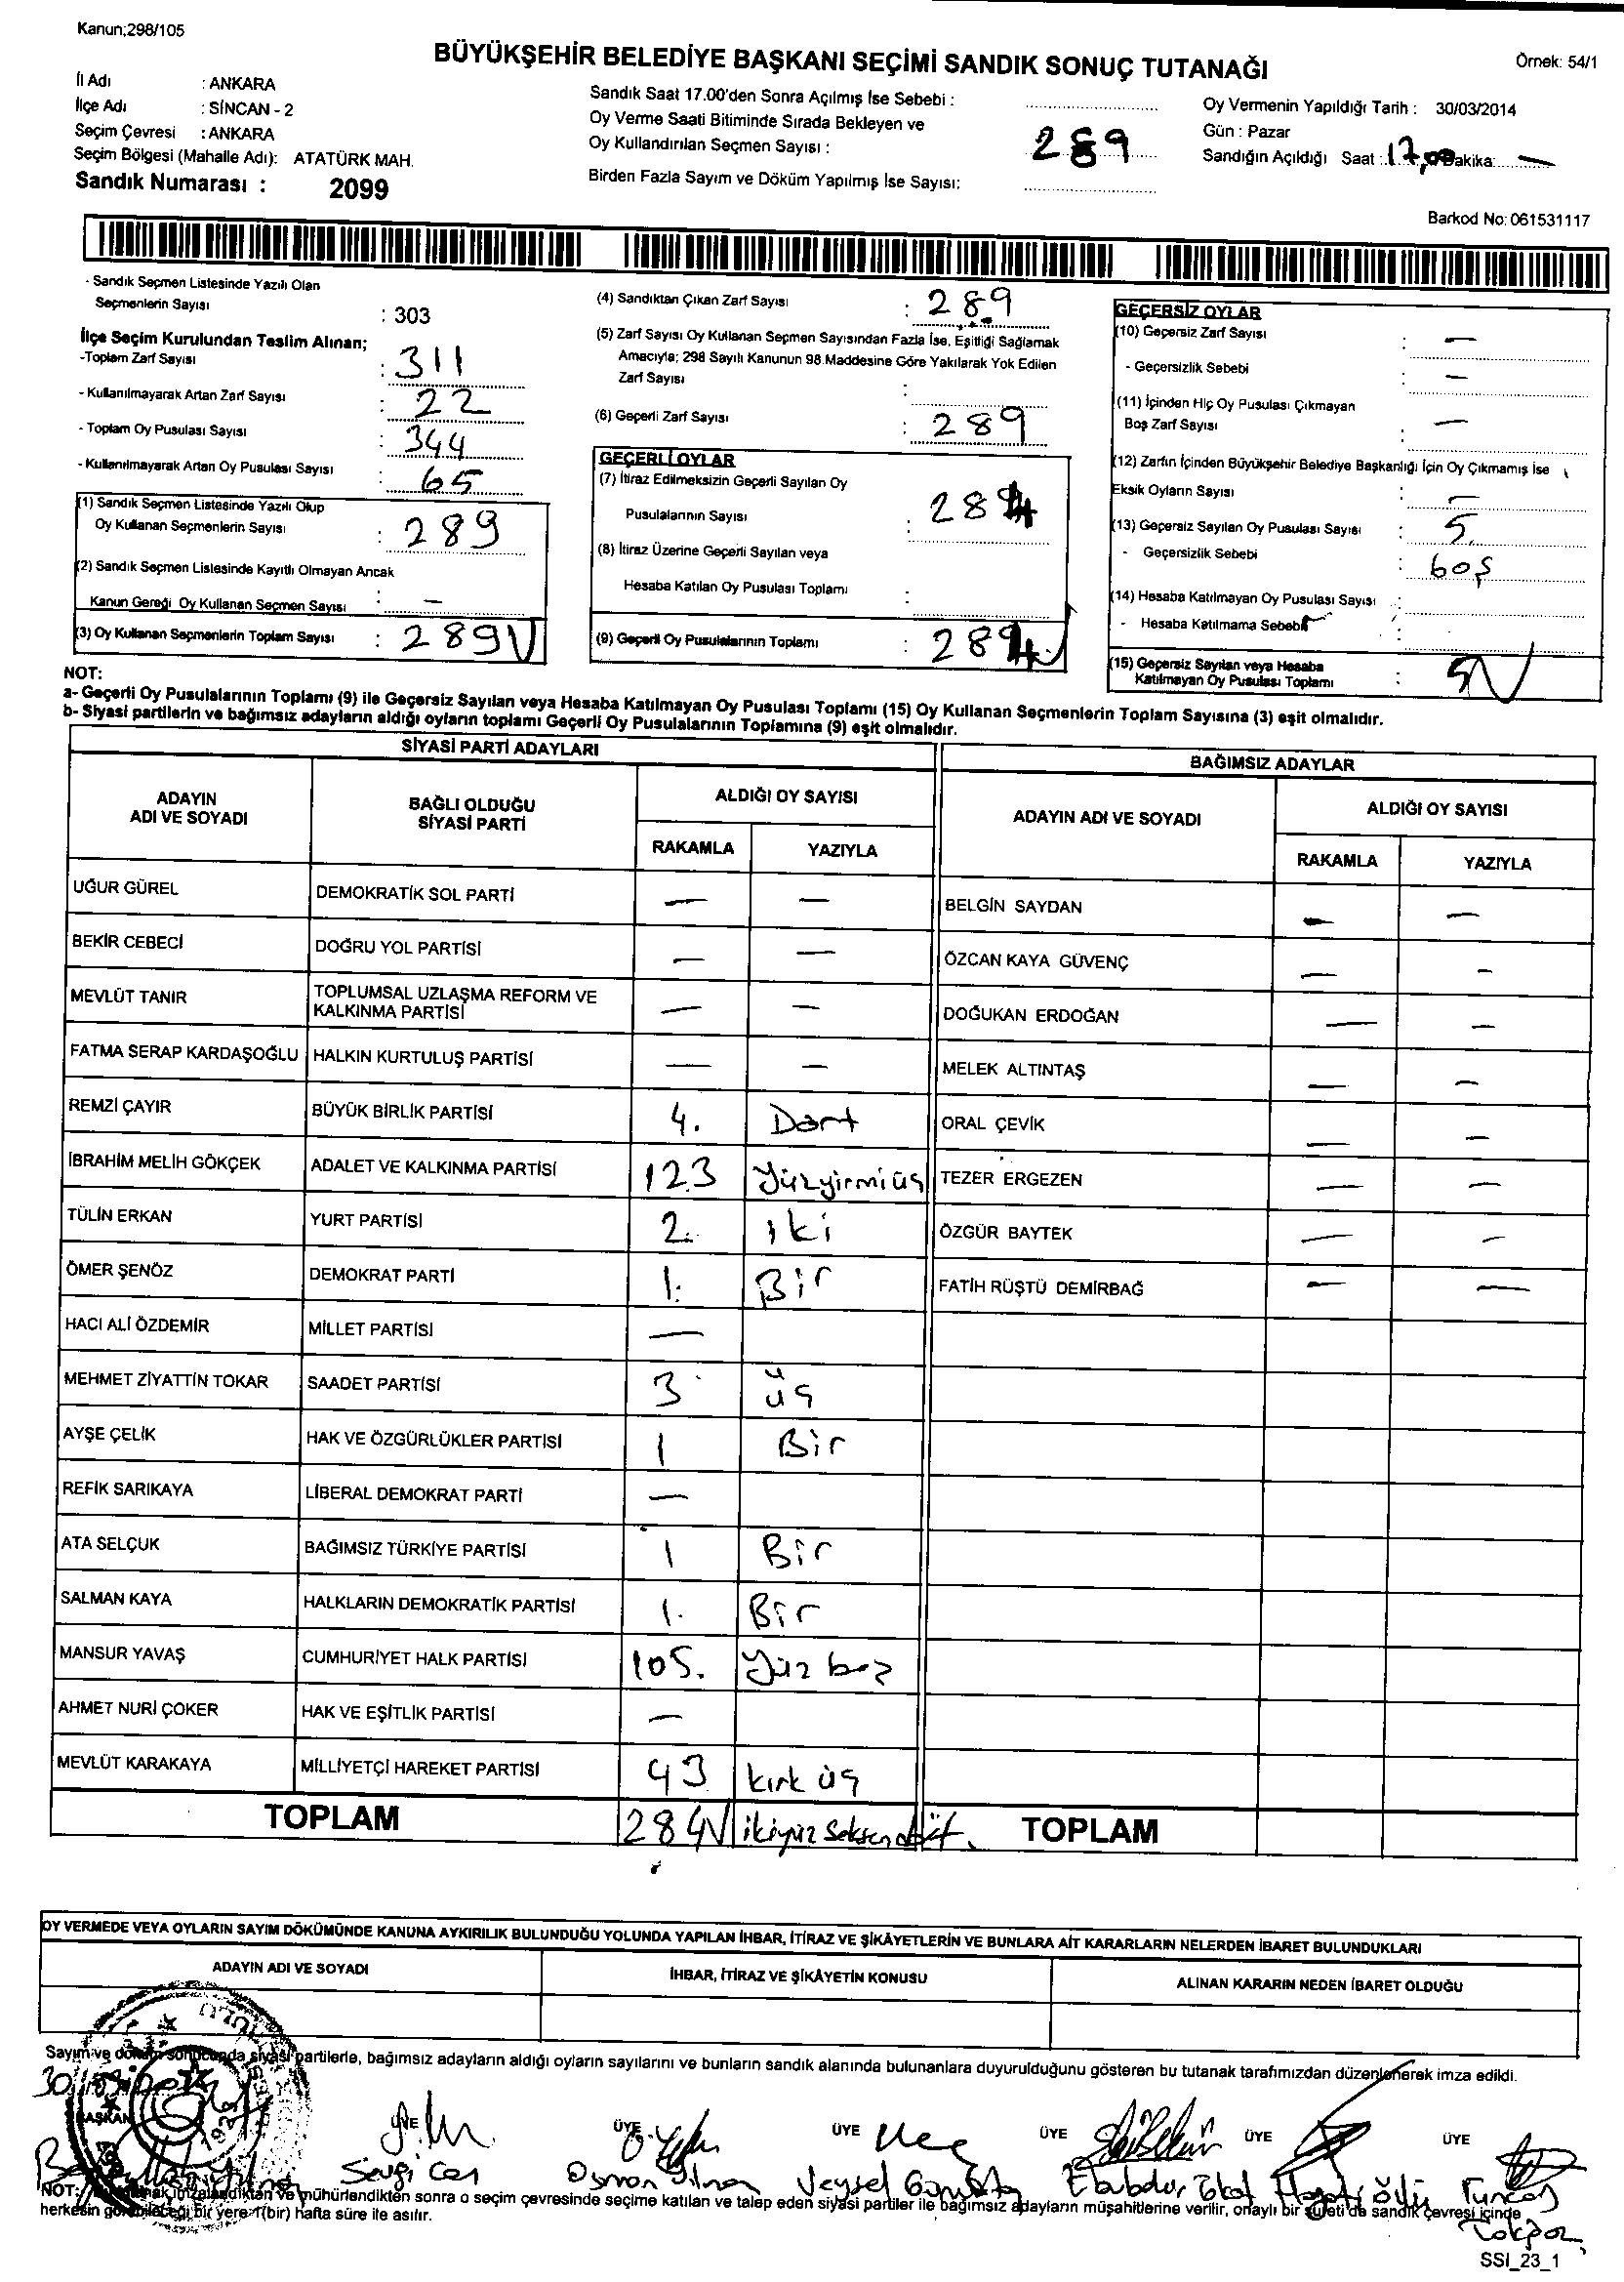 Kanun;298/105
BÜYÜKŞEHİR BELEDİYE BAŞKANI SEÇİMİ SANDIK SONUÇ TUTANAĞI
Örnek: 54/1
İl Adı : ANKARA
İlçe Adı : SİNCAN - 2
Seçim Çevresi : ANKARA
Seçim Bölgesi (Mahalle Adı): ATATÜRK MAH.
Sandık Numarası : 2099
Sandık Saat 17.00'den Sonra Açılmış İse Sebebi :
Oy Verme Saati Bitiminde Sırada Bekleyen ve
Oy Kullandırılan Seçmen Sayısı : 289
Birden Fazla Sayım ve Döküm Yapılmış İse Sayısı:
Oy Vermenin Yapıldığı Tarih : 30/03/2014
Gün : Pazar
Sandığın Açıldığı Saat : 17,00 Dakika: —
Barkod No: 061531117
- Sandık Seçmen Listesinde Yazılı Olan
Seçmenlerin Sayısı : 303
İlçe Seçim Kurulundan Teslim Alınan;
-Toplam Zarf Sayısı : 311
- Kullanılmayarak Artan Zarf Sayısı : 22
- Toplam Oy Pusulası Sayısı : 344
- Kullanılmayarak Artan Oy Pusulası Sayısı : 65
(1) Sandık Seçmen Listesinde Yazılı Olup
Oy Kullanan Seçmenlerin Sayısı : 289
(2) Sandık Seçmen Listesinde Kayıtlı Olmayan Ancak
Kanun Gereği Oy Kullanan Seçmen Sayısı : —
(3) Oy Kullanan Seçmenlerin Toplam Sayısı : 289
(4) Sandıktan Çıkan Zarf Sayısı : 289
(5) Zarf Sayısı Oy Kullanan Seçmen Sayısından Fazla İse, Eşitliği Sağlamak
Amacıyla; 298 Sayılı Kanunun 98.Maddesine Göre Yakılarak Yok Edilen
Zarf Sayısı :
(6) Geçerli Zarf Sayısı : 289
GEÇERLİ OYLAR
(7) İtiraz Edilmeksizin Geçerli Sayılan Oy
Pusulalarının Sayısı : 284
(8) İtiraz Üzerine Geçerli Sayılan veya
Hesaba Katılan Oy Pusulası Toplamı :
(9) Geçerli Oy Pusulalarının Toplamı : 284
GEÇERSİZ OYLAR
(10) Geçersiz Zarf Sayısı : —
- Geçersizlik Sebebi : —
(11) İçinden Hiç Oy Pusulası Çıkmayan
Boş Zarf Sayısı : —
(12) Zarfın İçinden Büyükşehir Belediye Başkanlığı İçin Oy Çıkmamış İse
Eksik Oyların Sayısı : —
(13) Geçersiz Sayılan Oy Pusulası Sayısı : 5.
- Geçersizlik Sebebi : boş
(14) Hesaba Katılmayan Oy Pusulası Sayısı :
- Hesaba Katılmama Sebebi :
(15) Geçersiz Sayılan veya Hesaba
Katılmayan Oy Pusulası Toplamı : 5
NOT:
a- Geçerli Oy Pusulalarının Toplamı (9) ile Geçersiz Sayılan veya Hesaba Katılmayan Oy Pusulası Toplamı (15) Oy Kullanan Seçmenlerin Toplam Sayısına (3) eşit olmalıdır.
b- Siyasi partilerin ve bağımsız adayların aldığı oyların toplamı Geçerli Oy Pusulalarının Toplamına (9) eşit olmalıdır.
SİYASİ PARTİ ADAYLARI
ADAYIN ADI VE SOYADI
BAĞLI OLDUĞU SİYASİ PARTİ
ALDIĞI OY SAYISI
RAKAMLA YAZIYLA
UĞUR GÜREL DEMOKRATİK SOL PARTİ — —
BEKİR CEBECİ DOĞRU YOL PARTİSİ — —
MEVLÜT TANIR TOPLUMSAL UZLAŞMA REFORM VE KALKINMA PARTİSİ — —
FATMA SERAP KARDAŞOĞLU HALKIN KURTULUŞ PARTİSİ — —
REMZİ ÇAYIR BÜYÜK BİRLİK PARTİSİ 4. Dört
İBRAHİM MELİH GÖKÇEK ADALET VE KALKINMA PARTİSİ 123 Yüzyirmiüç
TÜLİN ERKAN YURT PARTİSİ 2. iki
ÖMER ŞENÖZ DEMOKRAT PARTİ 1. Bir
HACI ALİ ÖZDEMİR MİLLET PARTİSİ —
MEHMET ZİYATTİN TOKAR SAADET PARTİSİ 3 üç
AYŞE ÇELİK HAK VE ÖZGÜRLÜKLER PARTİSİ 1 Bir
REFİK SARIKAYA LİBERAL DEMOKRAT PARTİ —
ATA SELÇUK BAĞIMSIZ TÜRKİYE PARTİSİ 1 Bir
SALMAN KAYA HALKLARIN DEMOKRATİK PARTİSİ 1. Bir
MANSUR YAVAŞ CUMHURİYET HALK PARTİSİ 105. Yüz beş
AHMET NURİ ÇOKER HAK VE EŞİTLİK PARTİSİ —
MEVLÜT KARAKAYA MİLLİYETÇİ HAREKET PARTİSİ 43 kırk üç
TOPLAM 284 ikiyüz seksen dört.
BAĞIMSIZ ADAYLAR
ADAYIN ADI VE SOYADI
ALDIĞI OY SAYISI
RAKAMLA YAZIYLA
BELGİN SAYDAN — —
ÖZCAN KAYA GÜVENÇ — —
DOĞUKAN ERDOĞAN — —
MELEK ALTINTAŞ — —
ORAL ÇEVİK — —
TEZER ERGEZEN — —
ÖZGÜR BAYTEK — —
FATİH RÜŞTÜ DEMİRBAĞ — —
TOPLAM
OY VERMEDE VEYA OYLARIN SAYIM DÖKÜMÜNDE KANUNA AYKIRILIK BULUNDUĞU YOLUNDA YAPILAN İHBAR, İTİRAZ VE ŞİKÂYETLERİN VE BUNLARA AİT KARARLARIN NELERDEN İBARET BULUNDUKLARI
ADAYIN ADI VE SOYADI
İHBAR, İTİRAZ VE ŞİKÂYETİN KONUSU
ALINAN KARARIN NEDEN İBARET OLDUĞU
Sayım ve döküm sonucunda siyasi partilerle, bağımsız adayların aldığı oyların sayılarını ve bunların sandık alanında bulunanlara duyurulduğunu gösteren bu tutanak tarafımızdan düzenlenerek imza edildi.
BAŞKAN ÜYE ÜYE ÜYE ÜYE ÜYE ÜYE
Sevgi Can Osman Veysel Tuncay
NOT: imzalandıktan ve mühürlendikten sonra o seçim çevresinde seçime katılan ve talep eden siyasi partiler ile bağımsız adayların müşahitlerine verilir, onaylı bir sureti de sandık çevresi içinde
herkesin görebileceği bir yere 1(bir) hafta süre ile asılır.
SSI_23_1